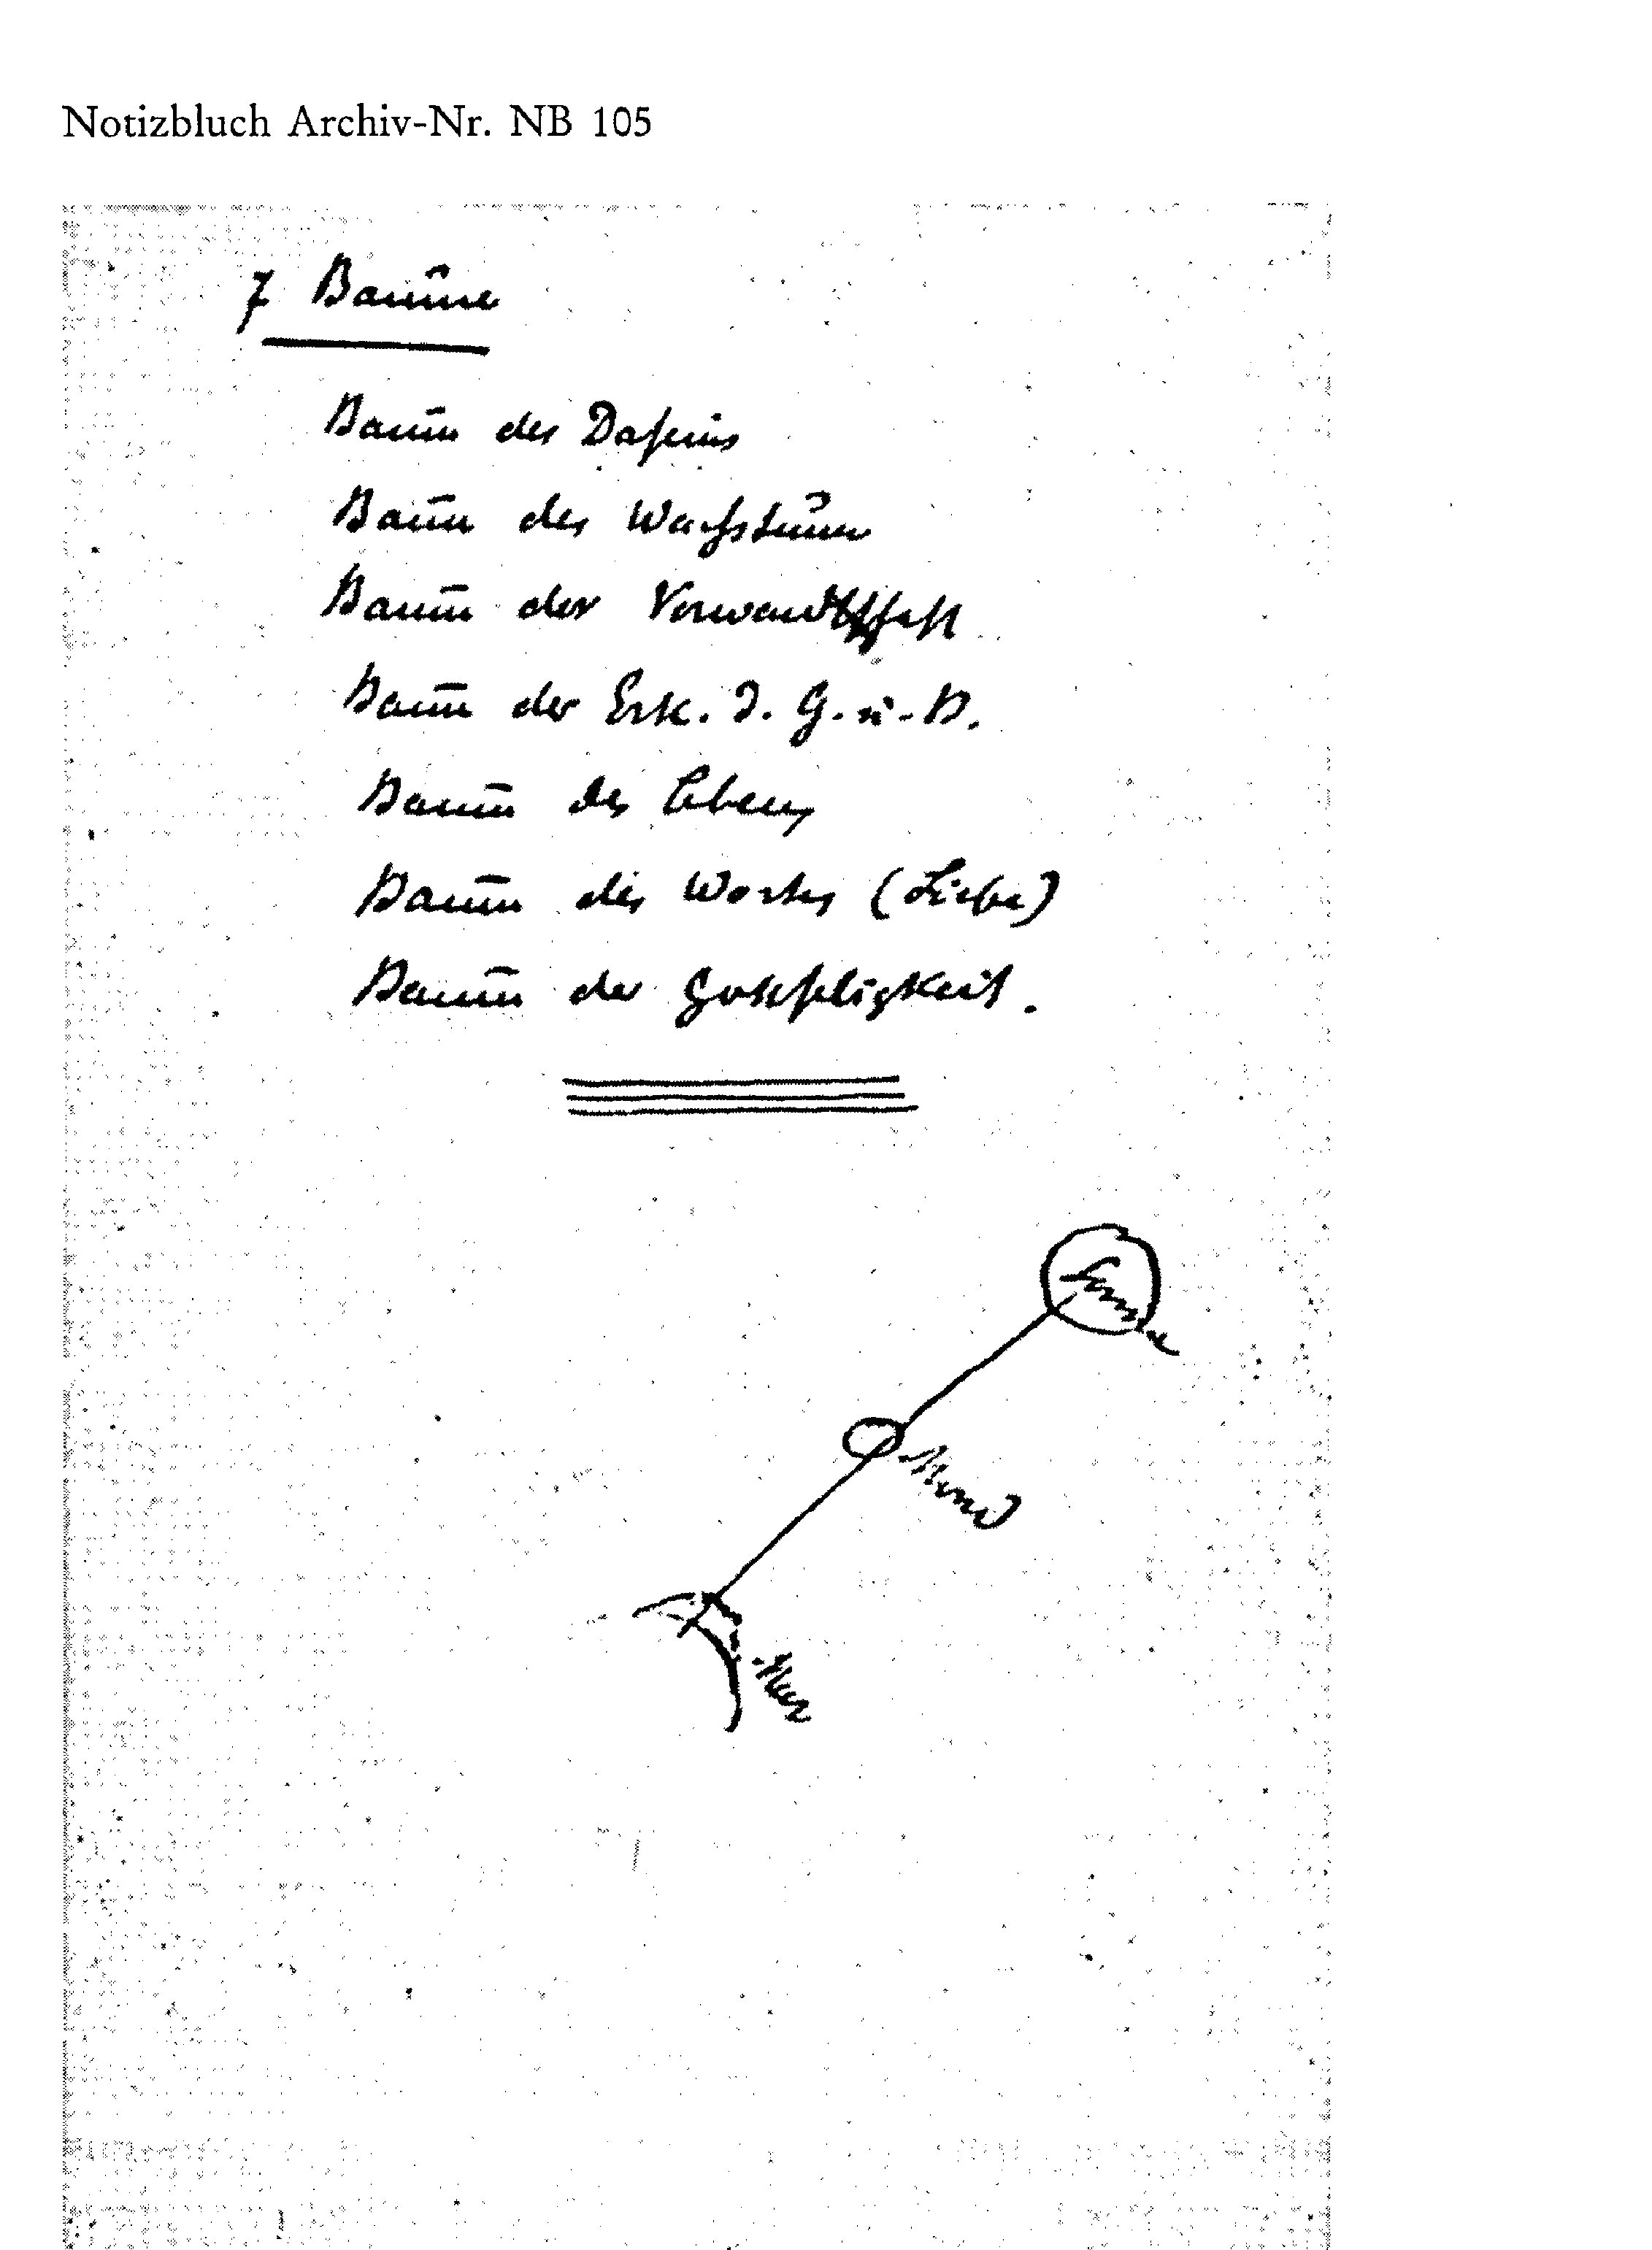 Notizbluch Archiv-Nr. NB 105
7 Bäume
Baum des Daseins
Baum des Wachstums
Baum der Verwandtschaft
Baum der Erk. d. G. u. B.
Baum des Lebens
Baum des Wortes (Liebe)
Baum der Gottseligkeit.
Sonne
Mond